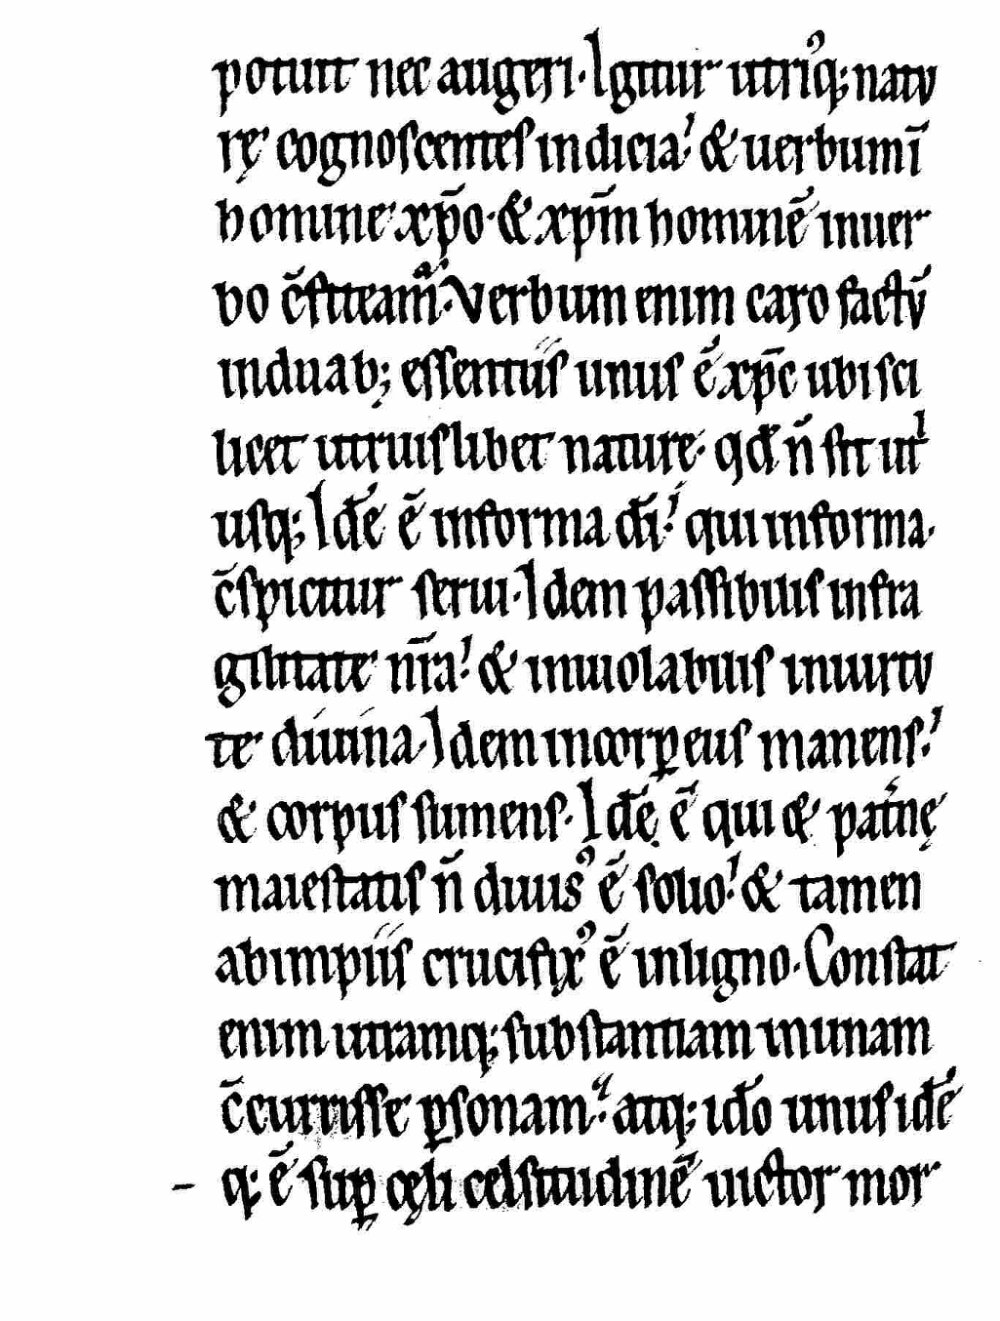 potuit nec augeri. Igitur utriꝰq; natu
rę cognoscentes indicia? & uerbum ī
homine xp̄o. & xp̄m hominē inuer
bo c̄fiteamᷓ. Verbum enim caro factū
induab; essentiis unus ē xp̄c ubi sci
licet utruislibet nature. qđ n̄ sit ut͛
usq; Idē ē informa dī? qui informa.
c̄spicitur serui. Idem passibilis infra
gilitate nr̄a? & inuiolabilis inuirtu
te diuina. Idem incorꝑeus manens?
& corpus sumens. Idē ē qui & pat̄nę
maiestatis n̄ diuisꝰ ē solio? & tamen
abimpiis crucifixꝰ ē inligno. Constat
enim utramq; substantiam inunam
c̄currisse ꝑsonam? atq; ido unus idē
q; ē suꝑ cęli celsitudinē uictor mor